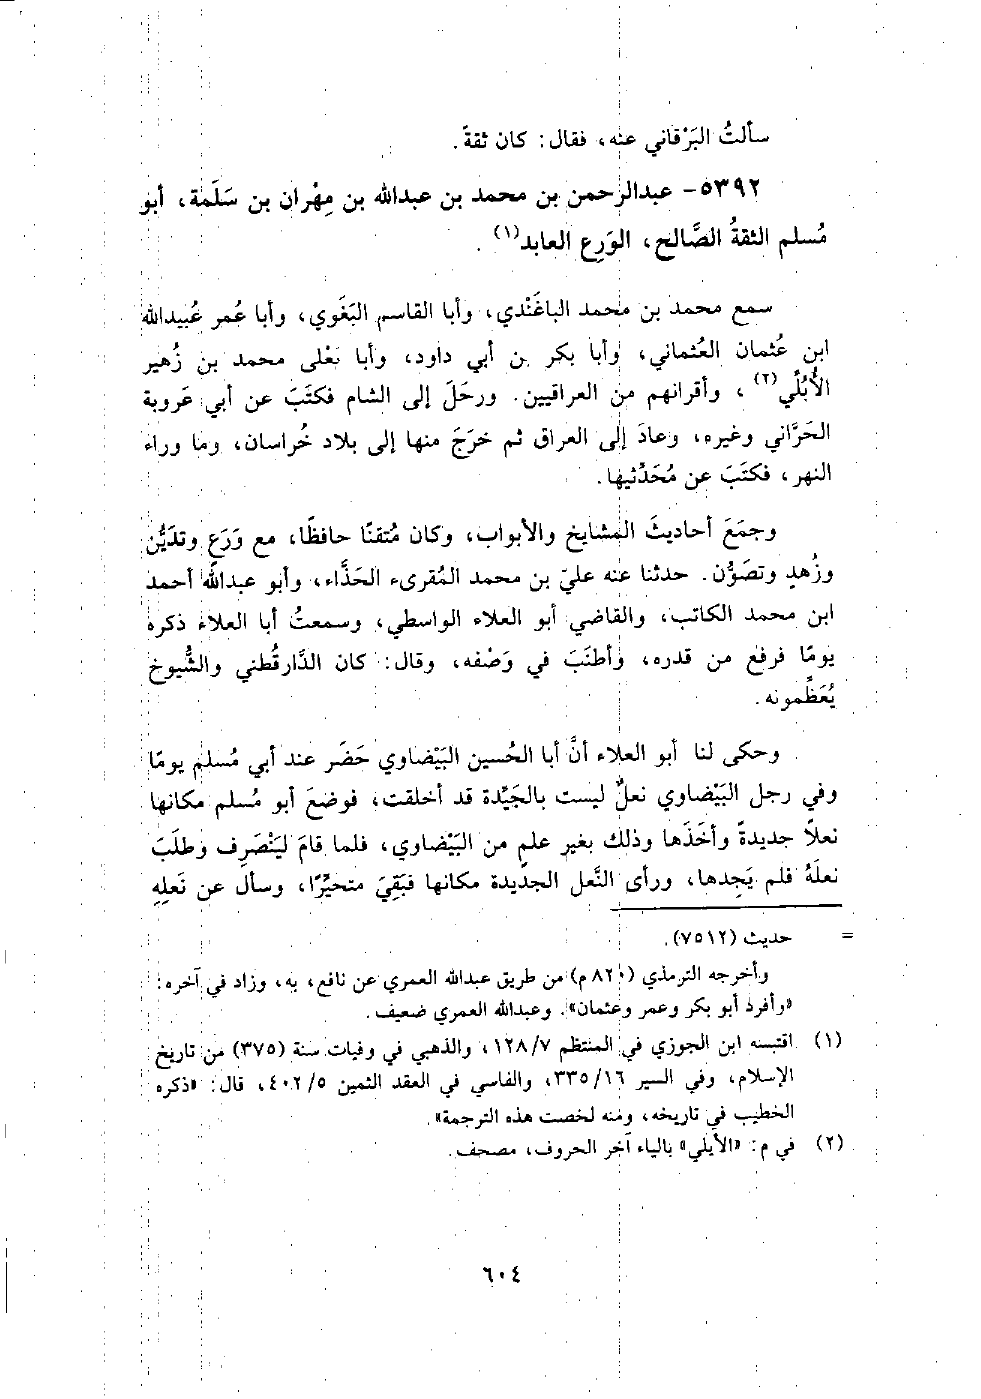 سألتُ البَرْقاني عنه، فقال: كان ثقةً.
٥٣٩٢- عبدالرحمن بن محمد بن عبدالله بن مِهْران بن سَلَمة، أبو
مُسلم الثقةُ الصَّالح، الوَرِع العابد(١).
سمع محمد بن محمد الباغَنْدي، وأبا القاسم البَغَوي، وأبا عُمر عُبيدالله
ابن عُثمان العُثماني، وأبا بكر بن أبي داود، وأبا يَعْلى محمد بن زُهير
الأُبُلِّي(٢)، وأقرانهم من العراقيين. ورحَلَ إلى الشام فكتَبَ عن أبي عَروبة
الحَرَّاني وغيره، وعادَ إلى العراق ثم خرَجَ منها إلى بلاد خُراسان، وما وراء
النهر، فكتَبَ عن مُحَدِّثيها.
وجمَعَ أحاديثَ المشايخ والأبواب، وكان مُتقنًا حافظًا، مع وَرَعٍ وتديُّن
وزُهدٍ وتصَوُّن. حدثنا عنه عليّ بن محمد المُقرىء الحَذَّاء، وأبو عبدالله أحمد
ابن محمد الكاتب، والقاضي أبو العلاء الواسطي، وسمعتُ أبا العلاء ذكره
يومًا فرفع من قدره، وأطنَبَ في وَصْفه، وقال: كان الدَّارقُطني والشُّيوخ
يُعَظِّمونه.
وحكى لنا أبو العلاء أنَّ أبا الحُسين البَيْضاوي حَضَر عند أبي مُسلم يومًا
وفي رجل البَيْضاوي نعلٌ ليست بالجَيِّدة قد أخلقت، فوضعَ أبو مُسلم مكانها
نعلاً جديدةً وأخَذَها وذلك بغير علمٍ من البَيْضاوي، فلما قامَ ليَنْصَرِف وطلَبَ
نعلَهُ فلم يَجِدها، ورأى النَّعل الجديدة مكانها فبَقِيَ متحيِّرًا، وسأل عن نَعلِهِ
= حديث (٧٥١٢).
وأخرجه الترمذي (٨٢٠ م) من طريق عبدالله العمري عن نافع، به، وزاد في آخره:
«وأفرد أبو بكر وعمر وعثمان». وعبدالله العمري ضعيف.
(١) اقتبسه ابن الجوزي في المنتظم ٧/ ١٢٨، والذهبي في وفيات سنة (٣٧٥) من تاريخ
الإسلام، وفي السير ١٦/ ٣٣٥، والفاسي في العقد الثمين ٥/ ٤٠٢، قال: «ذكره
الخطيب في تاريخه، ومنه لخصت هذه الترجمة».
(٢) في م: «الأيلي» بالياء آخر الحروف، مصحف.
٦٠٤